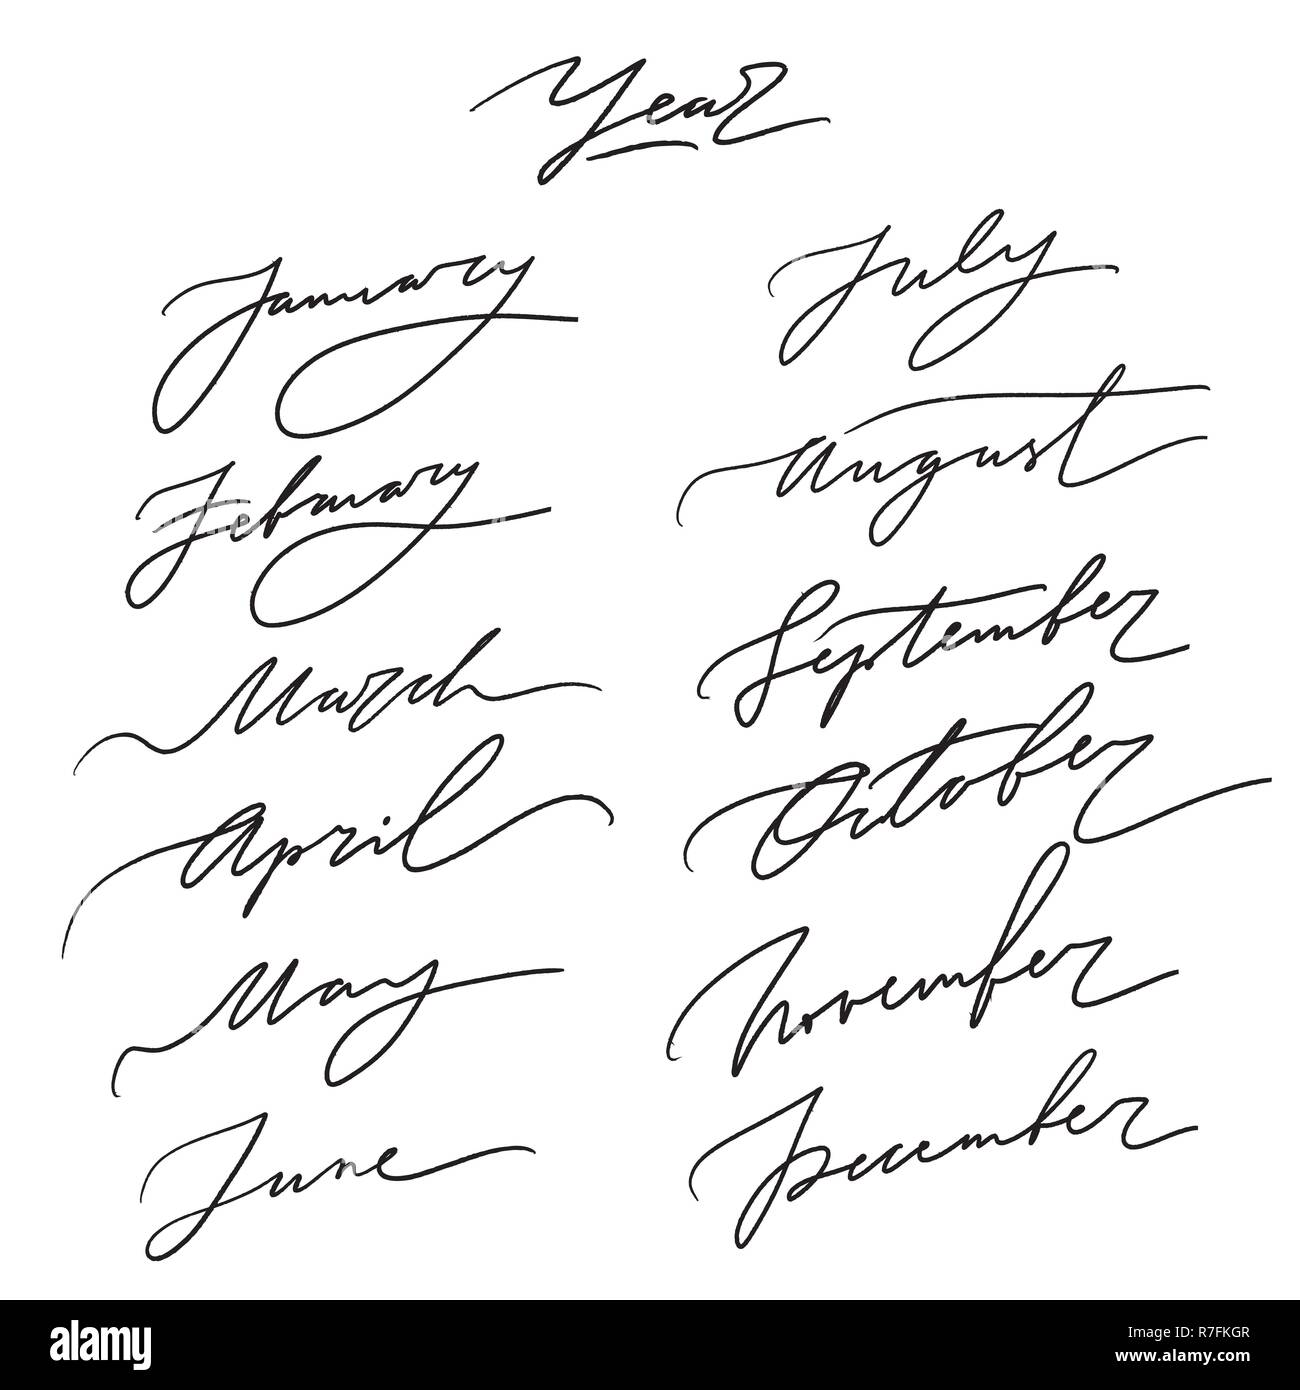 Year
January
February
March
April
May
June
July
August
September
October
November
December
alamy
Image ID: R7FKGR
www.alamy.com